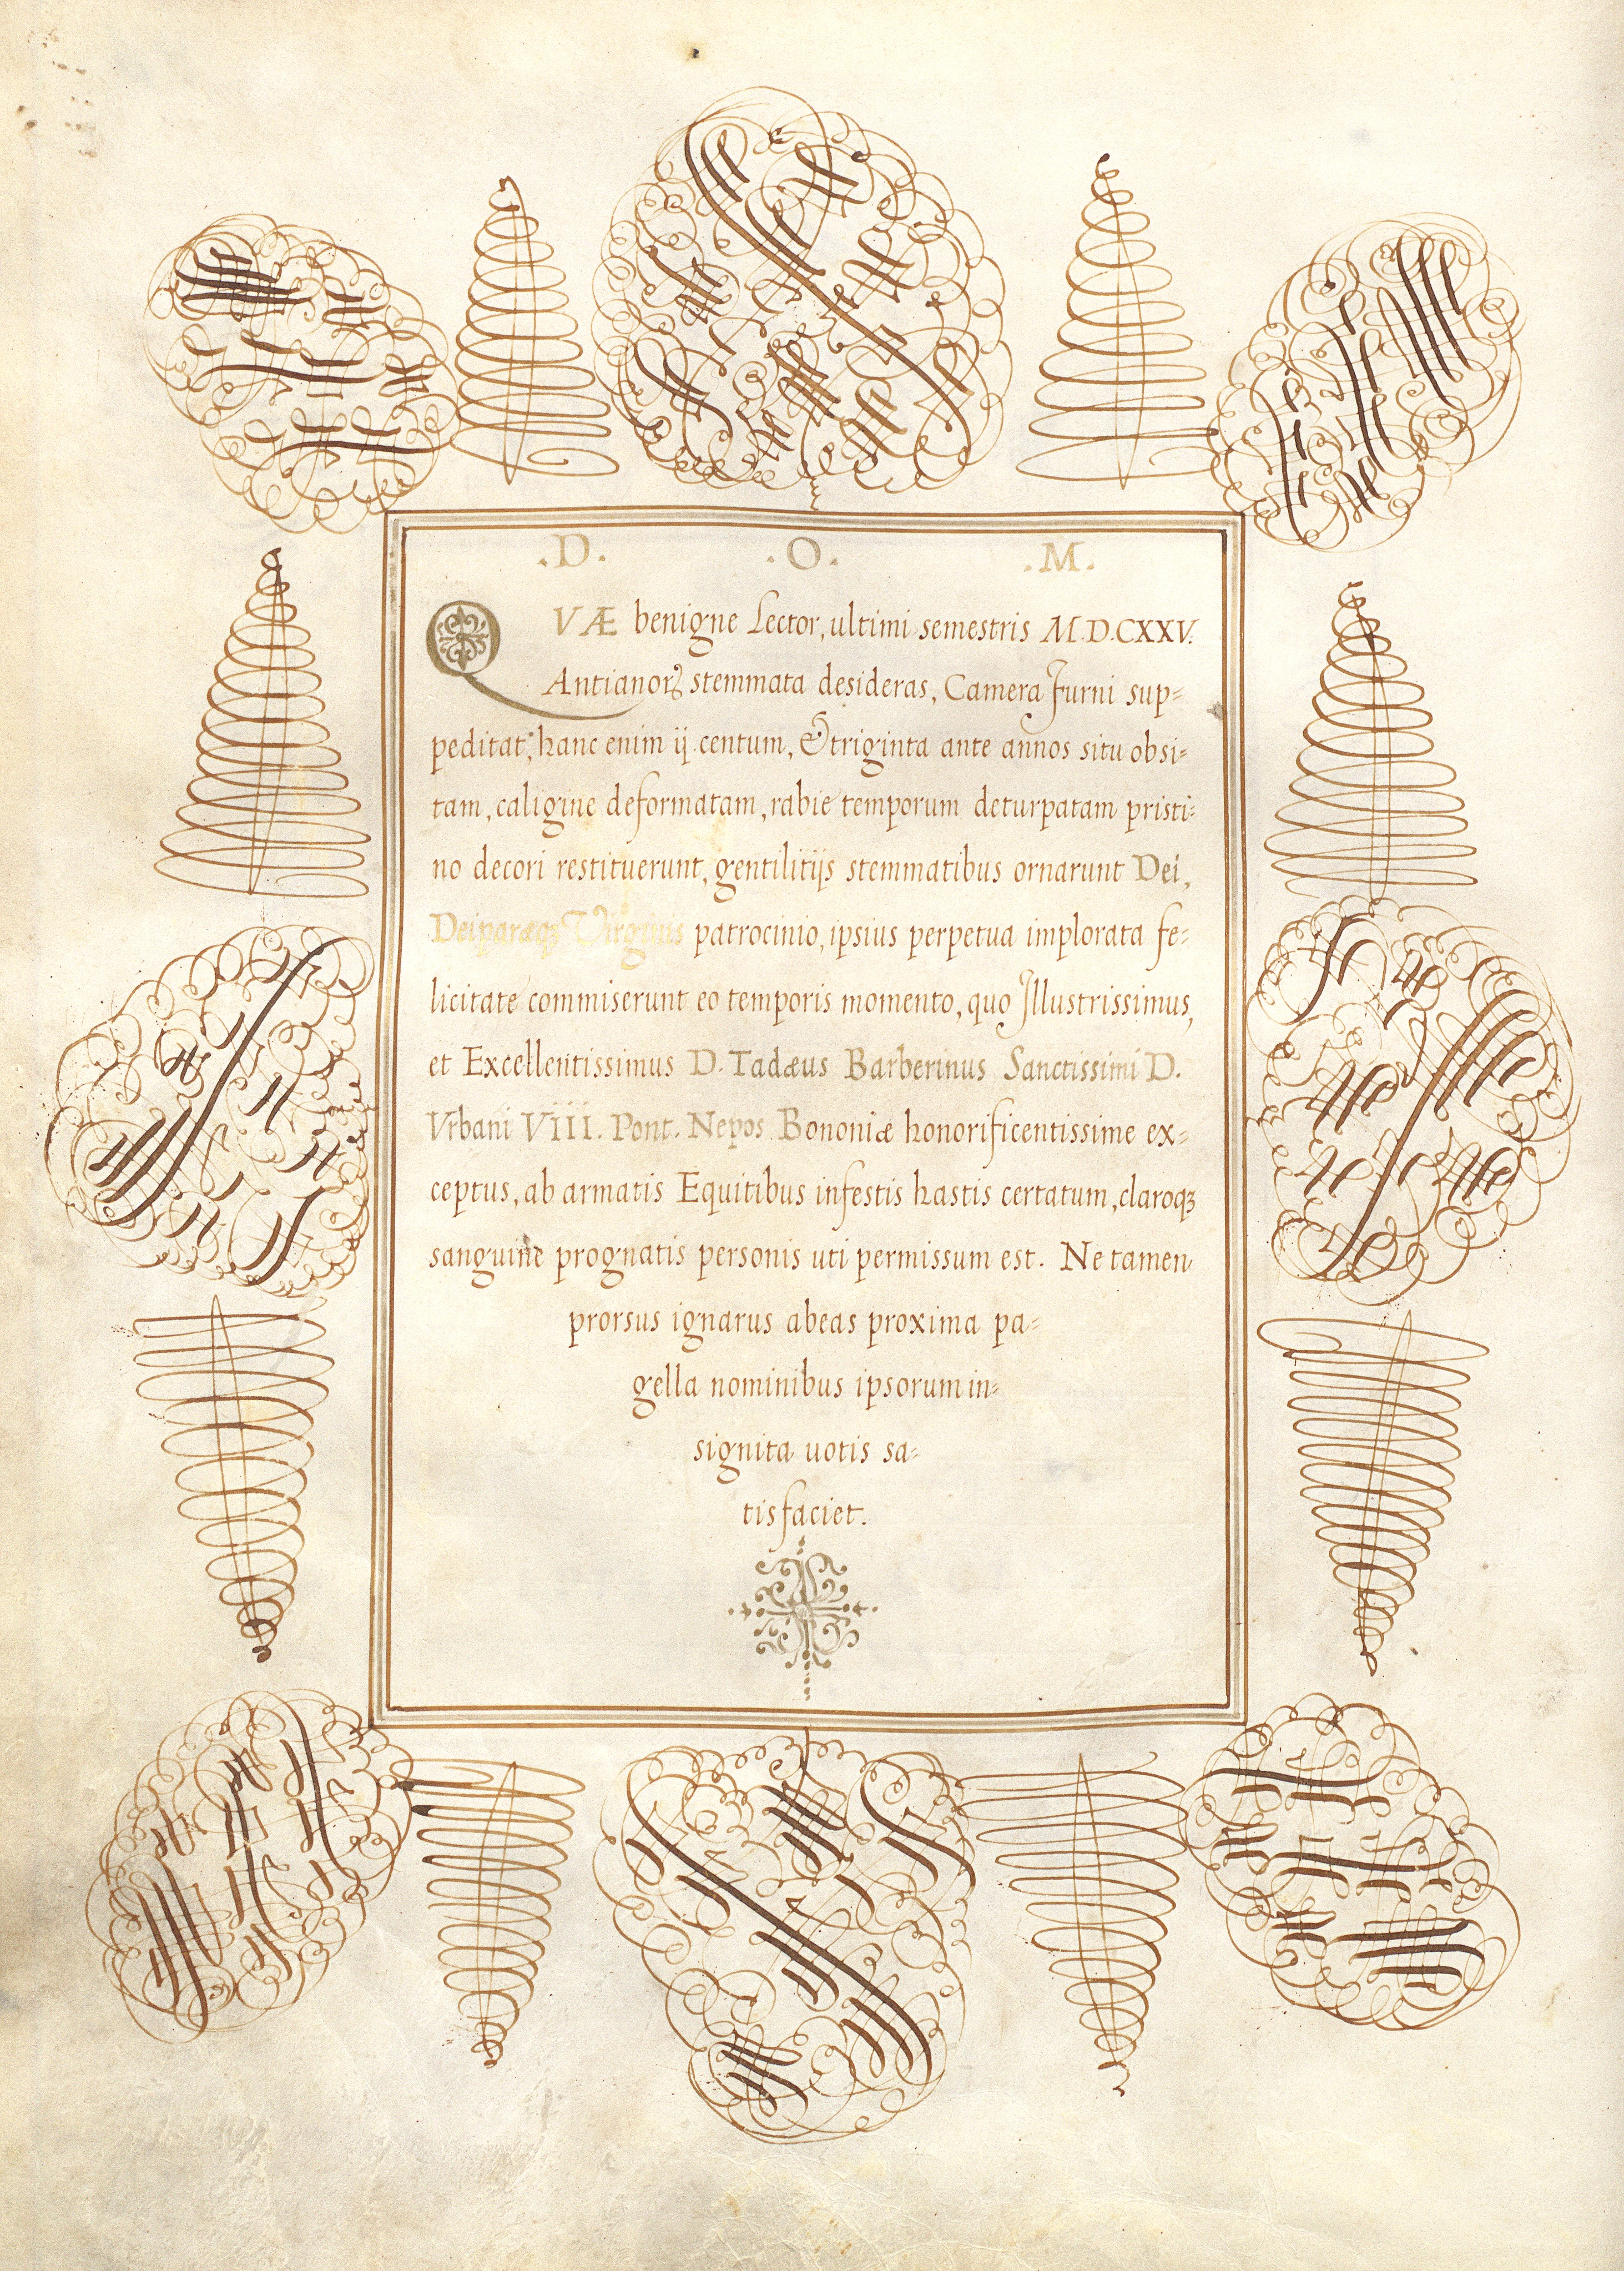 .D. .O. .M.
QVÆ benigne Lector, ultimi semestris M.D.CXXV.
Antianorꝝ stemmata desideras, Camera Furni sup=
peditat; hanc enim ij centum, & triginta ante annos situ obsi=
tam, caligine deformatam, rabie temporum deturpatam pristi=
no decori restituerunt, gentilitijs stemmatibus ornarunt Dei,
Deiparæqꝫ Virginis patrocinio, ipsius perpetua implorata fe=
licitate commiserunt eo temporis momento, quo Jllustrissimus,
et Excellentissimus D. Tadæus Barberinus Sanctissimi D.
Vrbani VIII. Pont. Nepos Bononiæ honorificentissime ex=
ceptus, ab armatis Equitibus infestis hastis certatum, claroqꝫ
sanguine prognatis personis uti permissum est. Ne tamen
prorsus ignarus abeas proxima pa=
gella nominibus ipsorum in=
signita uotis sa=
tisfaciet.